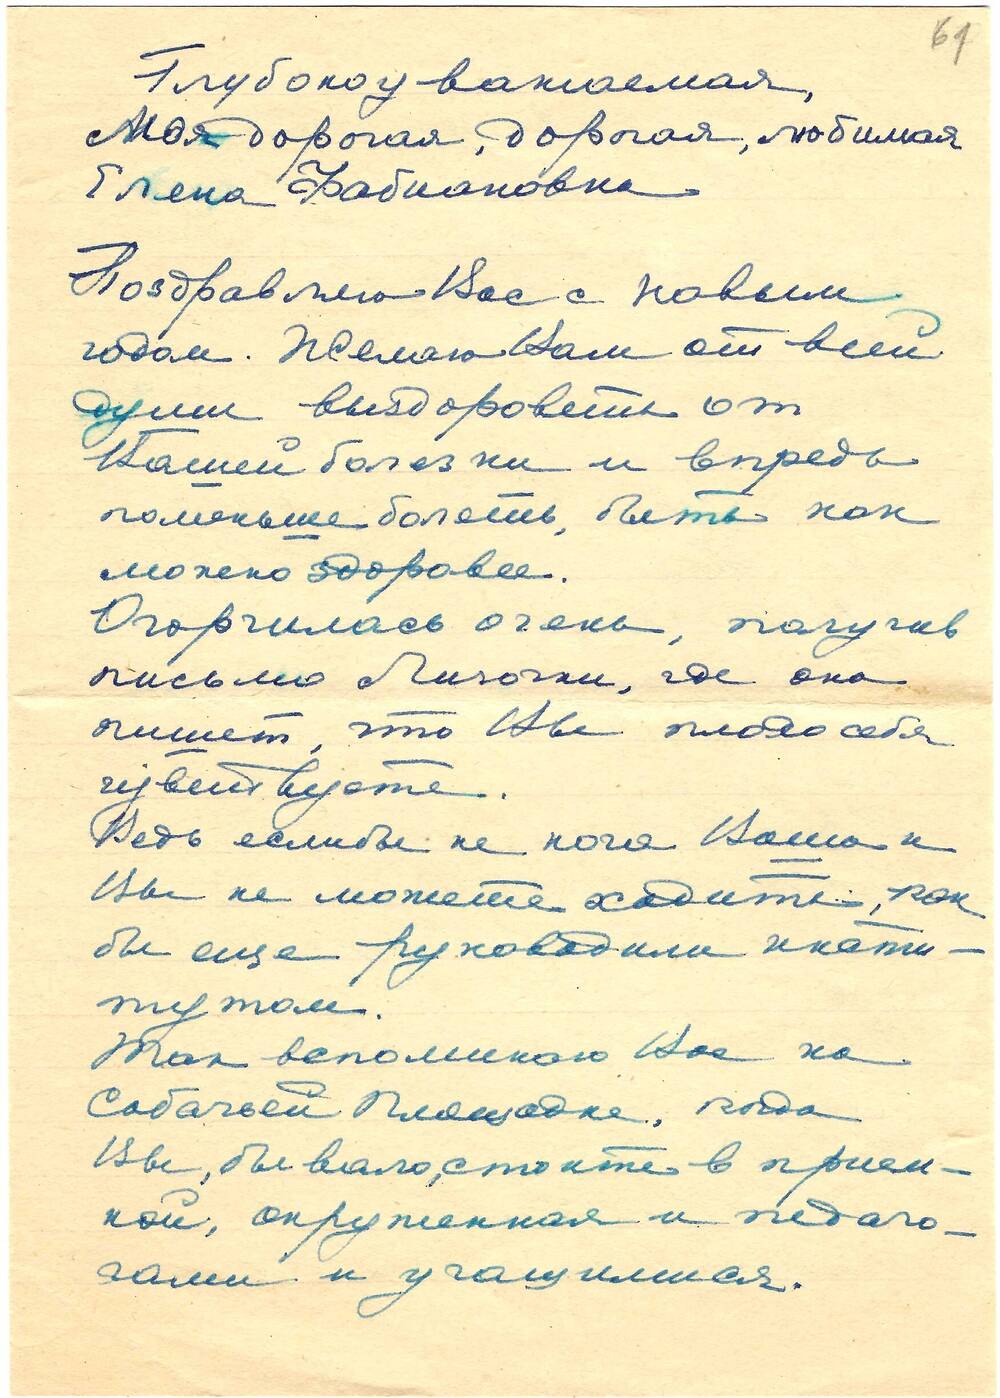 61
Глубокоуважаемая,
Моя дорогая, дорогая, любимая
Елена Фабиановна
Поздравляю Вас с новым
годом. Желаю Вам от всей
души выздороветь от
Вашей болезни и впредь
поменьше болеть, быть как
можно здоровее.
Огорчилась очень, получив
письмо Лизочки, где она
пишет, что Вы плохо себя
чувствуете.
Ведь еслибы не нога Ваша и
Вы не можете ходить, как
бы еще руководили инсти-
тутом.
Так вспоминаю Вас на
Собачьей Площадке, когда
Вы, бывало, стоите в прием-
ной, окруженная и педаго-
гами и учащимися.